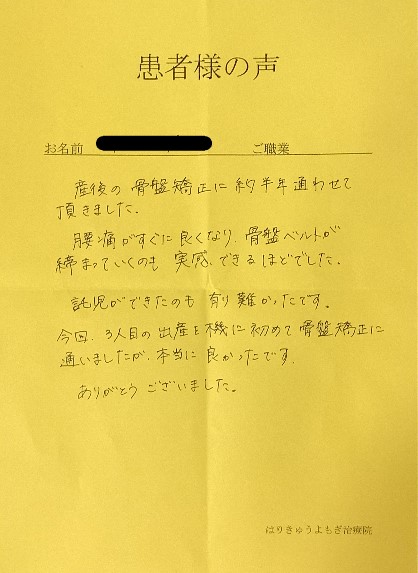 患者様の声
お名前 ご職業
産後の骨盤矯正に約半年通わせて
頂きました。
腰痛がすぐに良くなり、骨盤ベルトが
締まっていくのも実感できるほどでした。
託児ができたのも有り難かったです。
今回、3人目の出産を機に初めて骨盤矯正に
通いましたが、本当に良かったです。
ありがとうございました。
はりきゅうよもぎ治療院